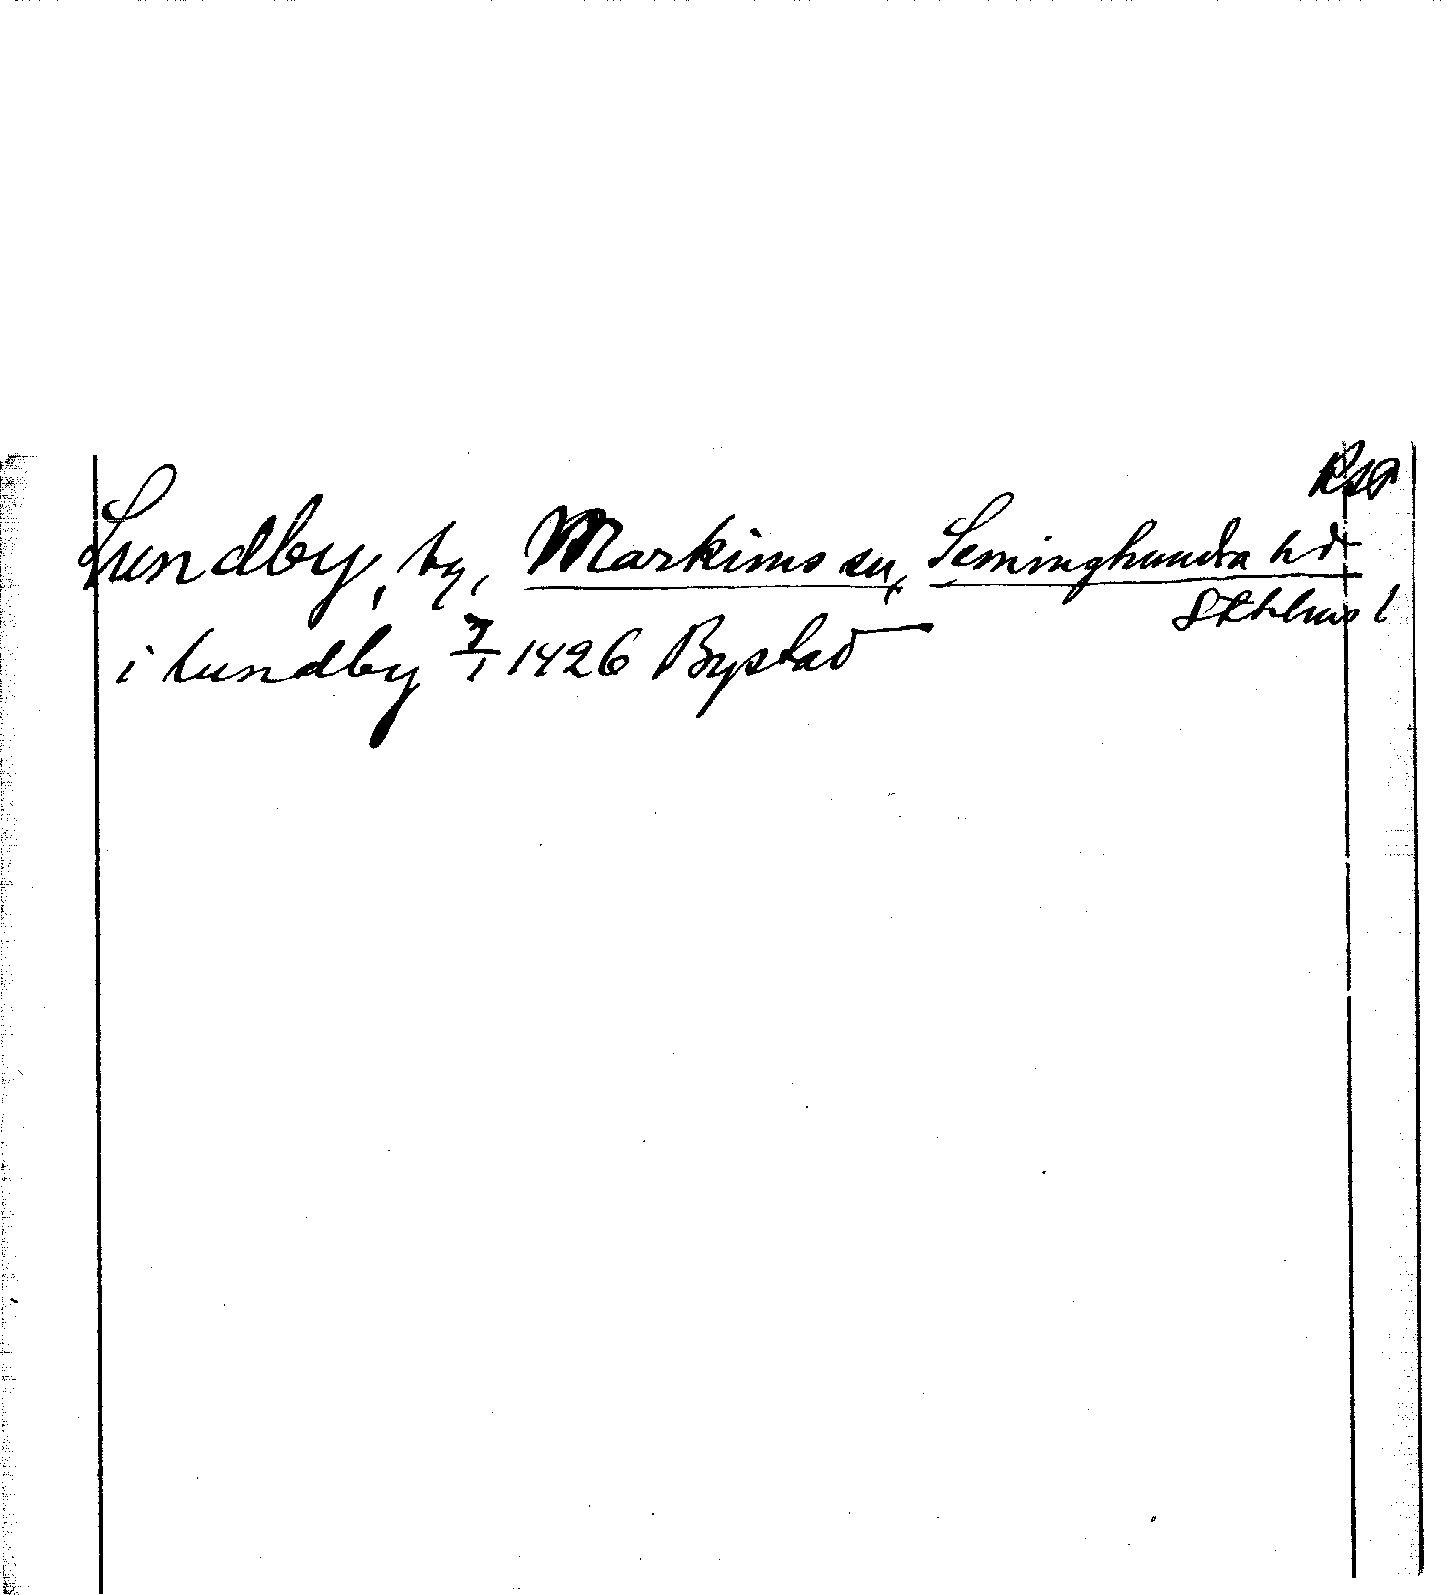 RAP
Lundby, by, Markims sn, Seminghundra hd
Sthlms l
i lundby 7/1 1426 Bystad